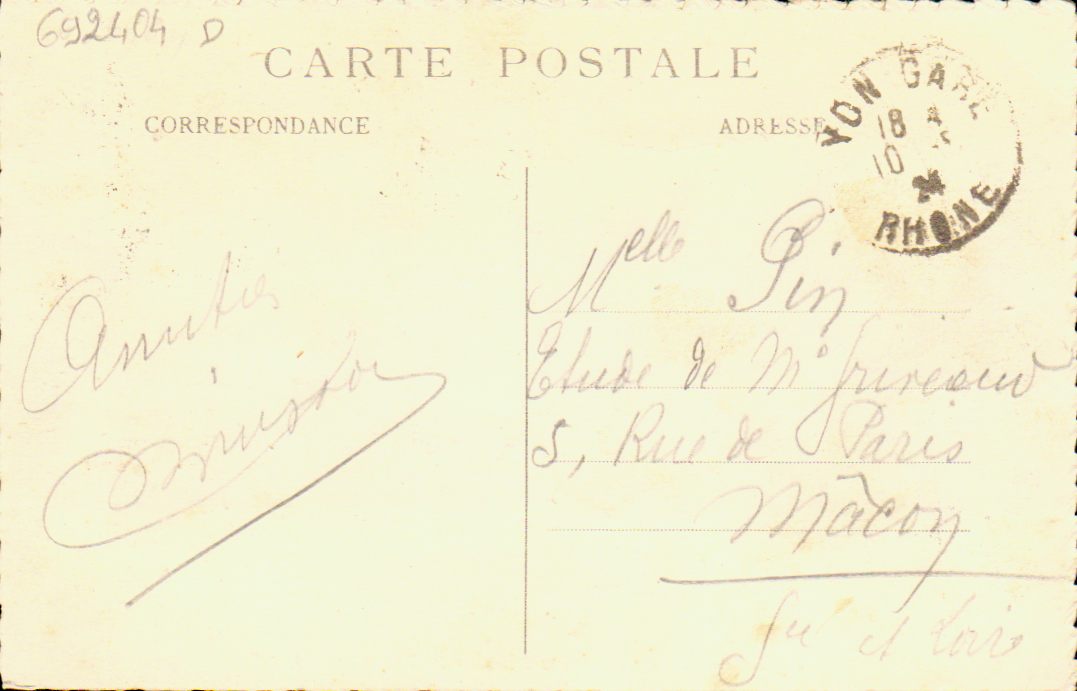 692404 D
CARTE POSTALE
CORRESPONDANCE
ADRESSE
YON GARE
18
10
24
RHONE
Amitiés
Melle Pin
Etude de Me
5, Rue de Paris
Mâcon
Sne et Loire